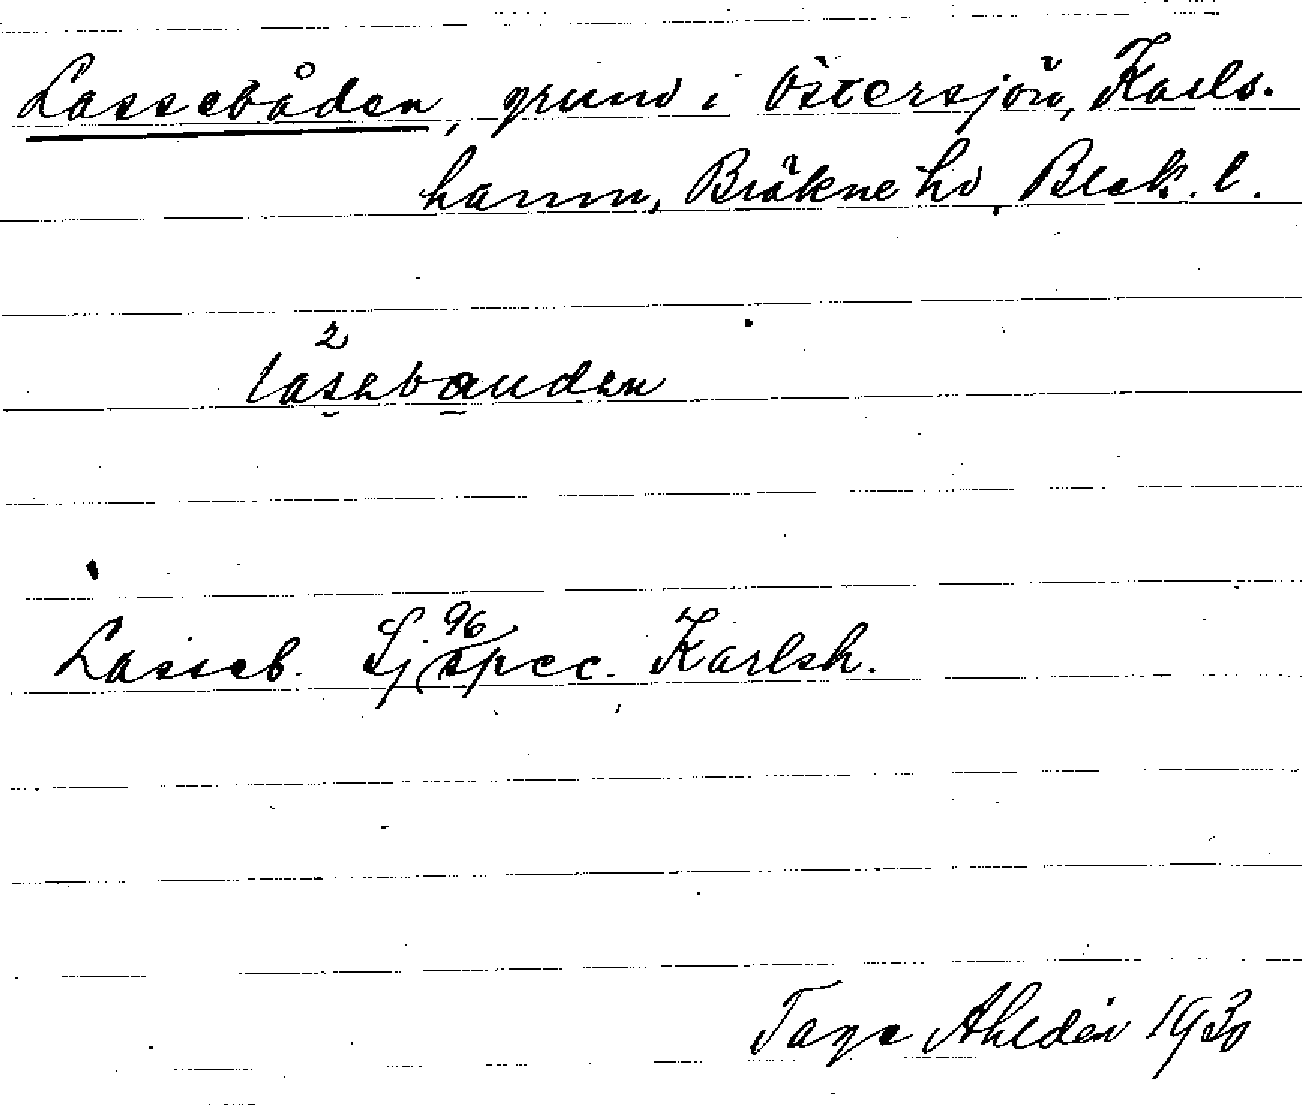 Lassebåden, grund i Östersjön, Karls-
hamn, Bräkne hd, Blek. l.
2
lasebauden
Lasseb. Sj spec. 96 Karlsh.
Tage Ahldén 1930